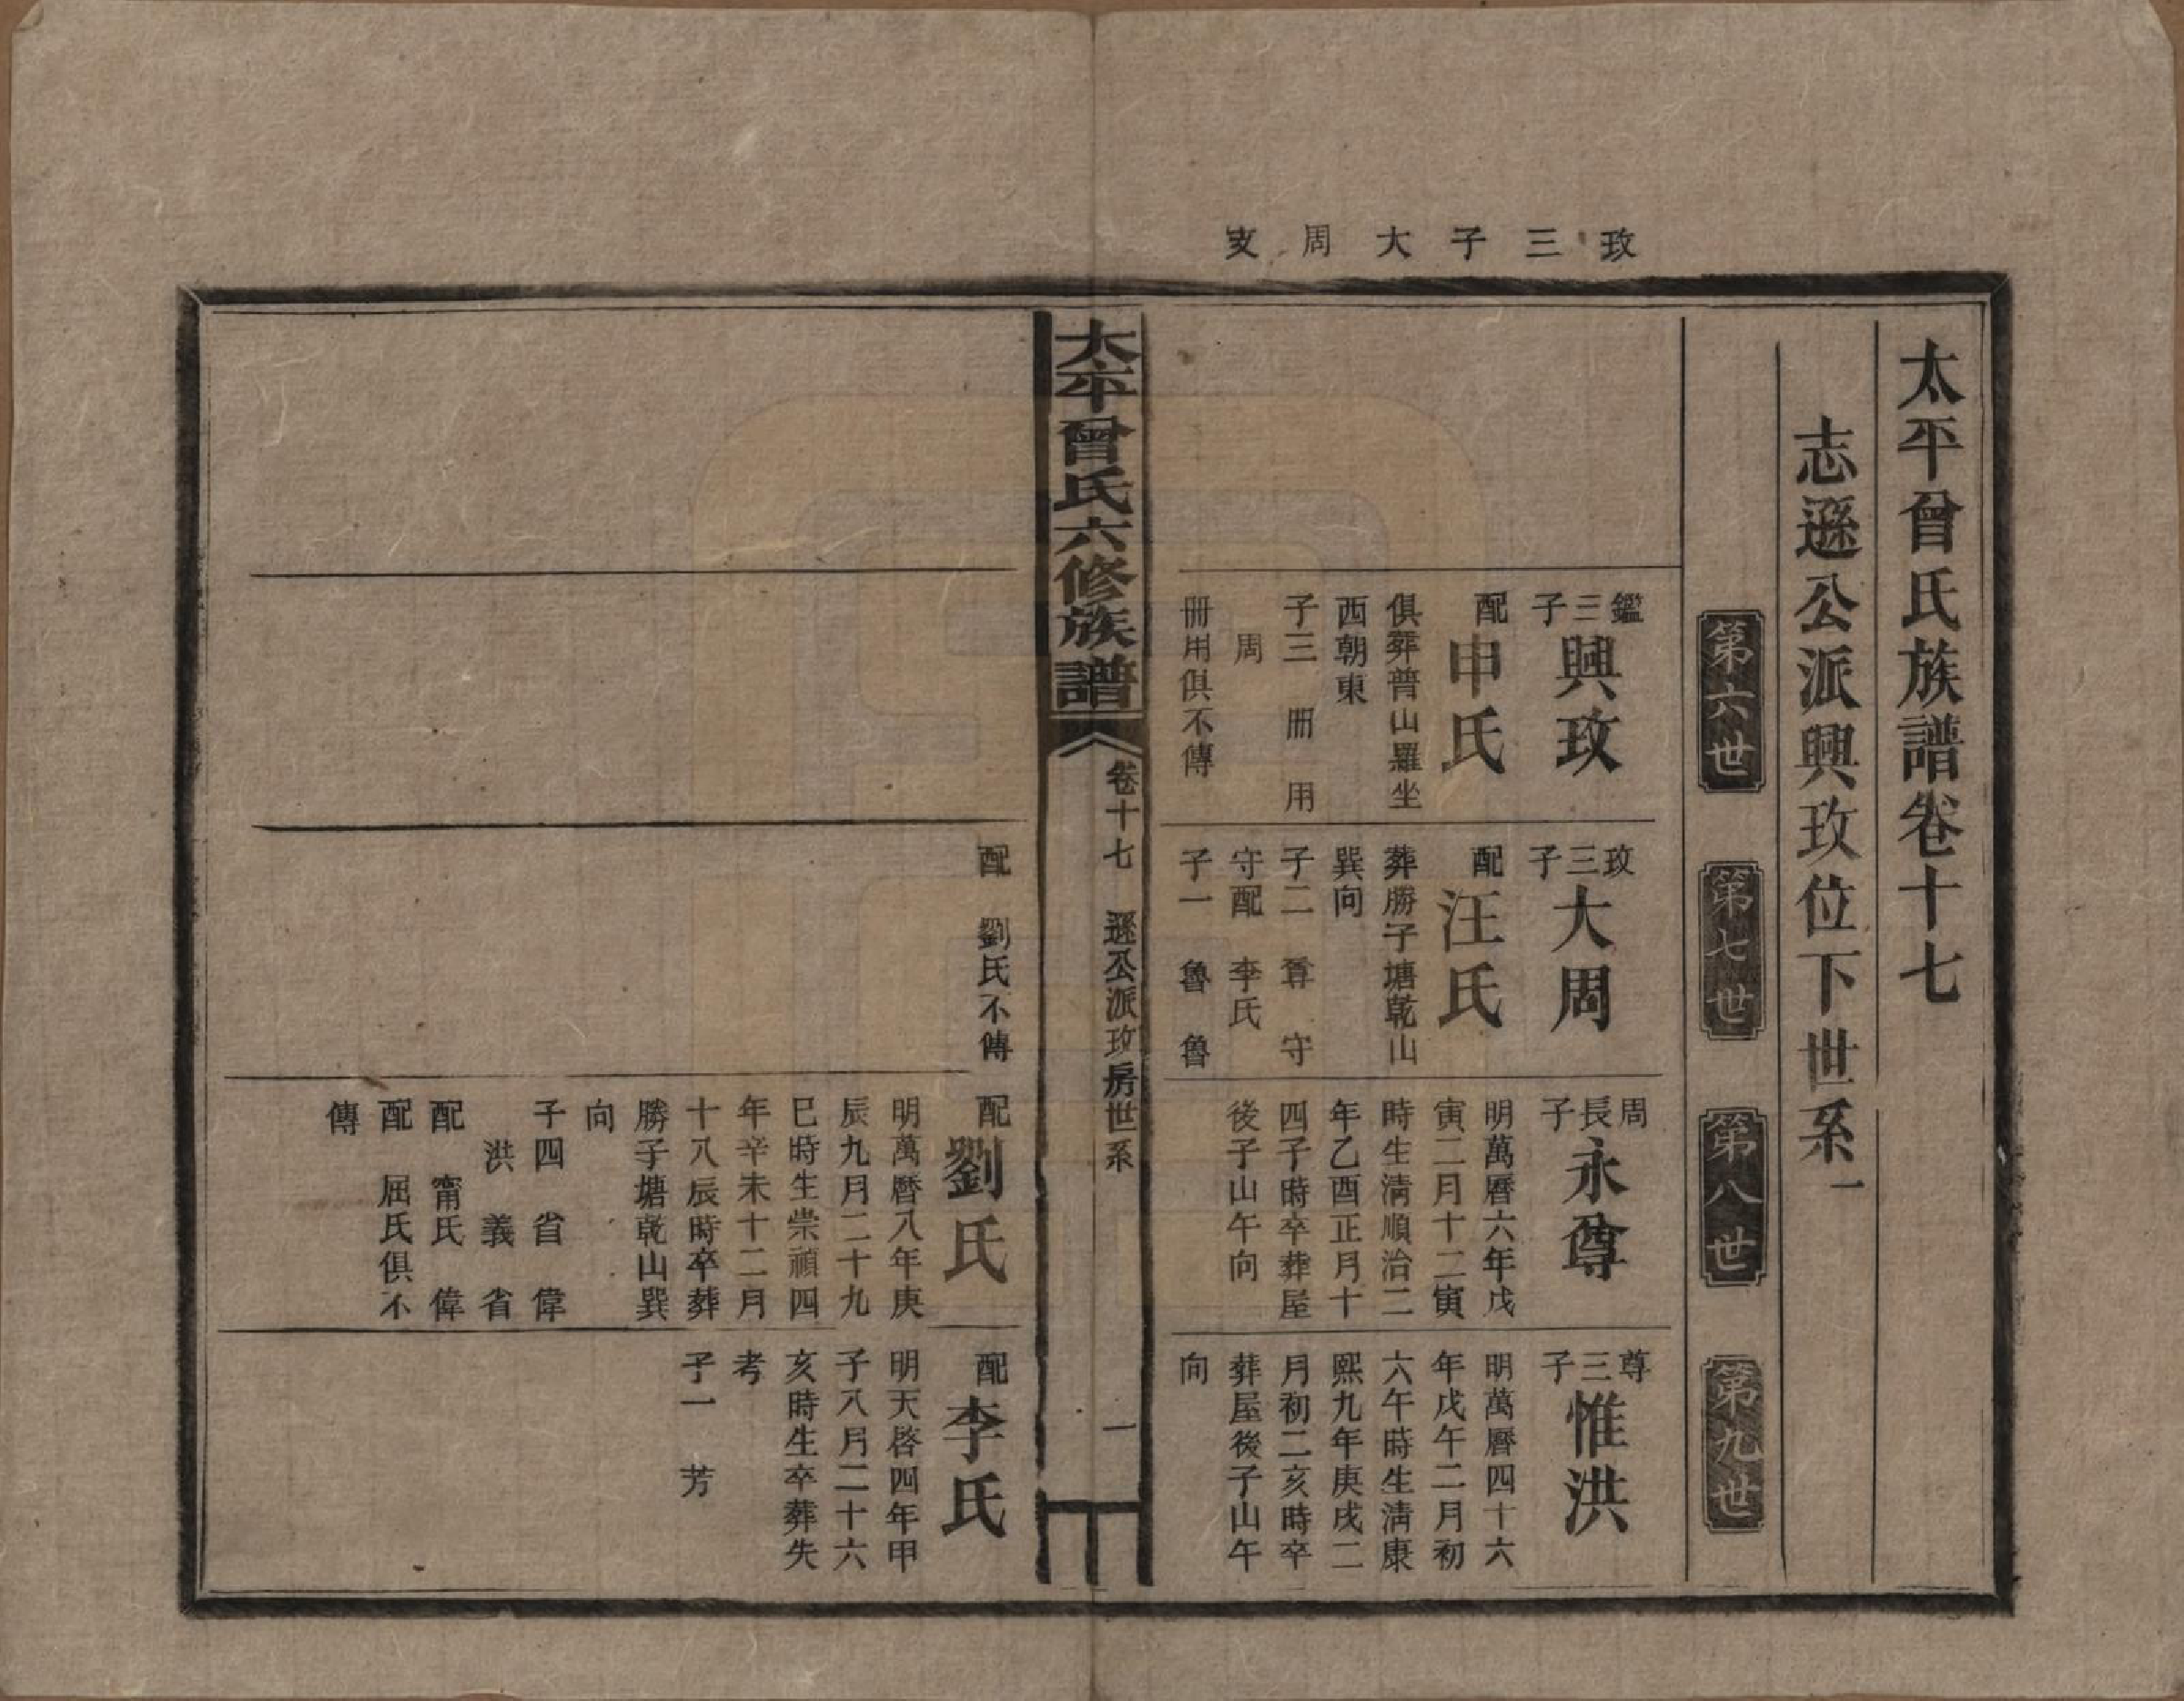 玫三子大周支
太平曾氏族譜卷十七
志遜公派興玫位下世系一
第六世
第七世
第八世
第九世
鑑三子
興玫
配
申氏
俱葬普山羅坐
西朝東
子三 冊 用
周
冊用俱不傳
玫三子
大周
配
汪氏
葬勝子塘乾山
巽向
子二 尊 守
守配 李氏
子一 魯 魯
配 劉氏不傳
周長子
永尊
明萬曆六年戊
寅二月十二寅
時生清順治二
年乙酉正月十
四子時卒葬屋
後子山午向
配
劉氏
明萬曆八年庚
辰九月二十九
巳時生崇禎四
年辛未十二月
十八辰時卒葬
勝子塘乾山巽
向
子四 省 偉
洪 義 省
配 甯氏 偉
配 屈氏俱不
傳
尊三子
惟洪
明萬曆四十六
年戊午二月初
六午時生清康
熙九年庚戌二
月初二亥時卒
葬屋後子山午
向
配
李氏
明天啓四年甲
子八月二十六
亥時生卒葬失
考
子一 芳
太平曾氏六修族譜
卷十七 遜公派玫房世系
一